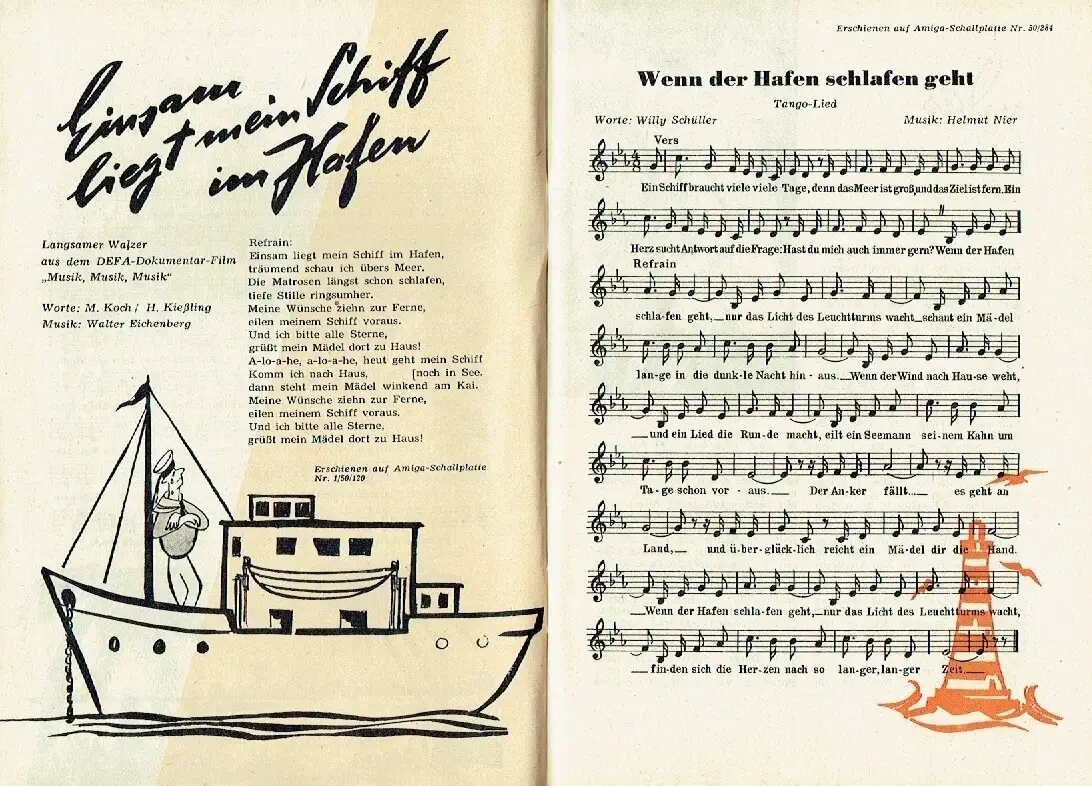 Einsam
liegt mein Schiff
im Hafen
Langsamer Walzer
aus dem DEFA-Dokumentar-Film
„Musik, Musik, Musik“
Worte: M. Koch / H. Kießling
Musik: Walter Eichenberg
Refrain:
Einsam liegt mein Schiff im Hafen,
träumend schau ich übers Meer.
Die Matrosen längst schon schlafen,
tiefe Stille ringsumher.
Meine Wünsche ziehn zur Ferne,
eilen meinem Schiff voraus.
Und ich bitte alle Sterne,
grüßt mein Mädel dort zu Haus!
A-lo-a-he, a-lo-a-he, heut geht mein Schiff
Komm ich nach Haus, [noch in See.
dann steht mein Mädel winkend am Kai.
Meine Wünsche ziehn zur Ferne,
eilen meinem Schiff voraus.
Und ich bitte alle Sterne,
grüßt mein Mädel dort zu Haus!
Erschienen auf Amiga-Schallplatte
Nr. 1/50/120
Erschienen auf Amiga-Schallplatte Nr. 50/284
Wenn der Hafen schlafen geht
Tango-Lied
Worte: Willy Schüller Musik: Helmut Nier
Vers
Ein Schiff braucht viele viele Tage, denn das Meer ist groß, und das Ziel ist fern. Ein
Herz sucht Antwort auf die Frage: Hast du mich auch immer gern? Wenn der Hafen
Refrain
schla-fen geht,__ nur das Licht des Leuchtturms wacht__ schaut ein Mä-del
lan-ge in die dunk-le Nacht hin - aus.__ Wenn der Wind nach Hau-se weht,
__ und ein Lied die Run-de macht, eilt ein Seemann sei-nem Kahn um
Ta-ge schon vor - aus.__ Der An-ker fällt__ es geht an
Land,__ und ü-ber-glück-lich reicht ein Mä-del dir die Hand.
__ Wenn der Hafen schla-fen geht,__ nur das Licht des Leuchtturms wacht,
__ fin-den sich die Her-zen nach so lan-ger, lan-ger Zeit.__